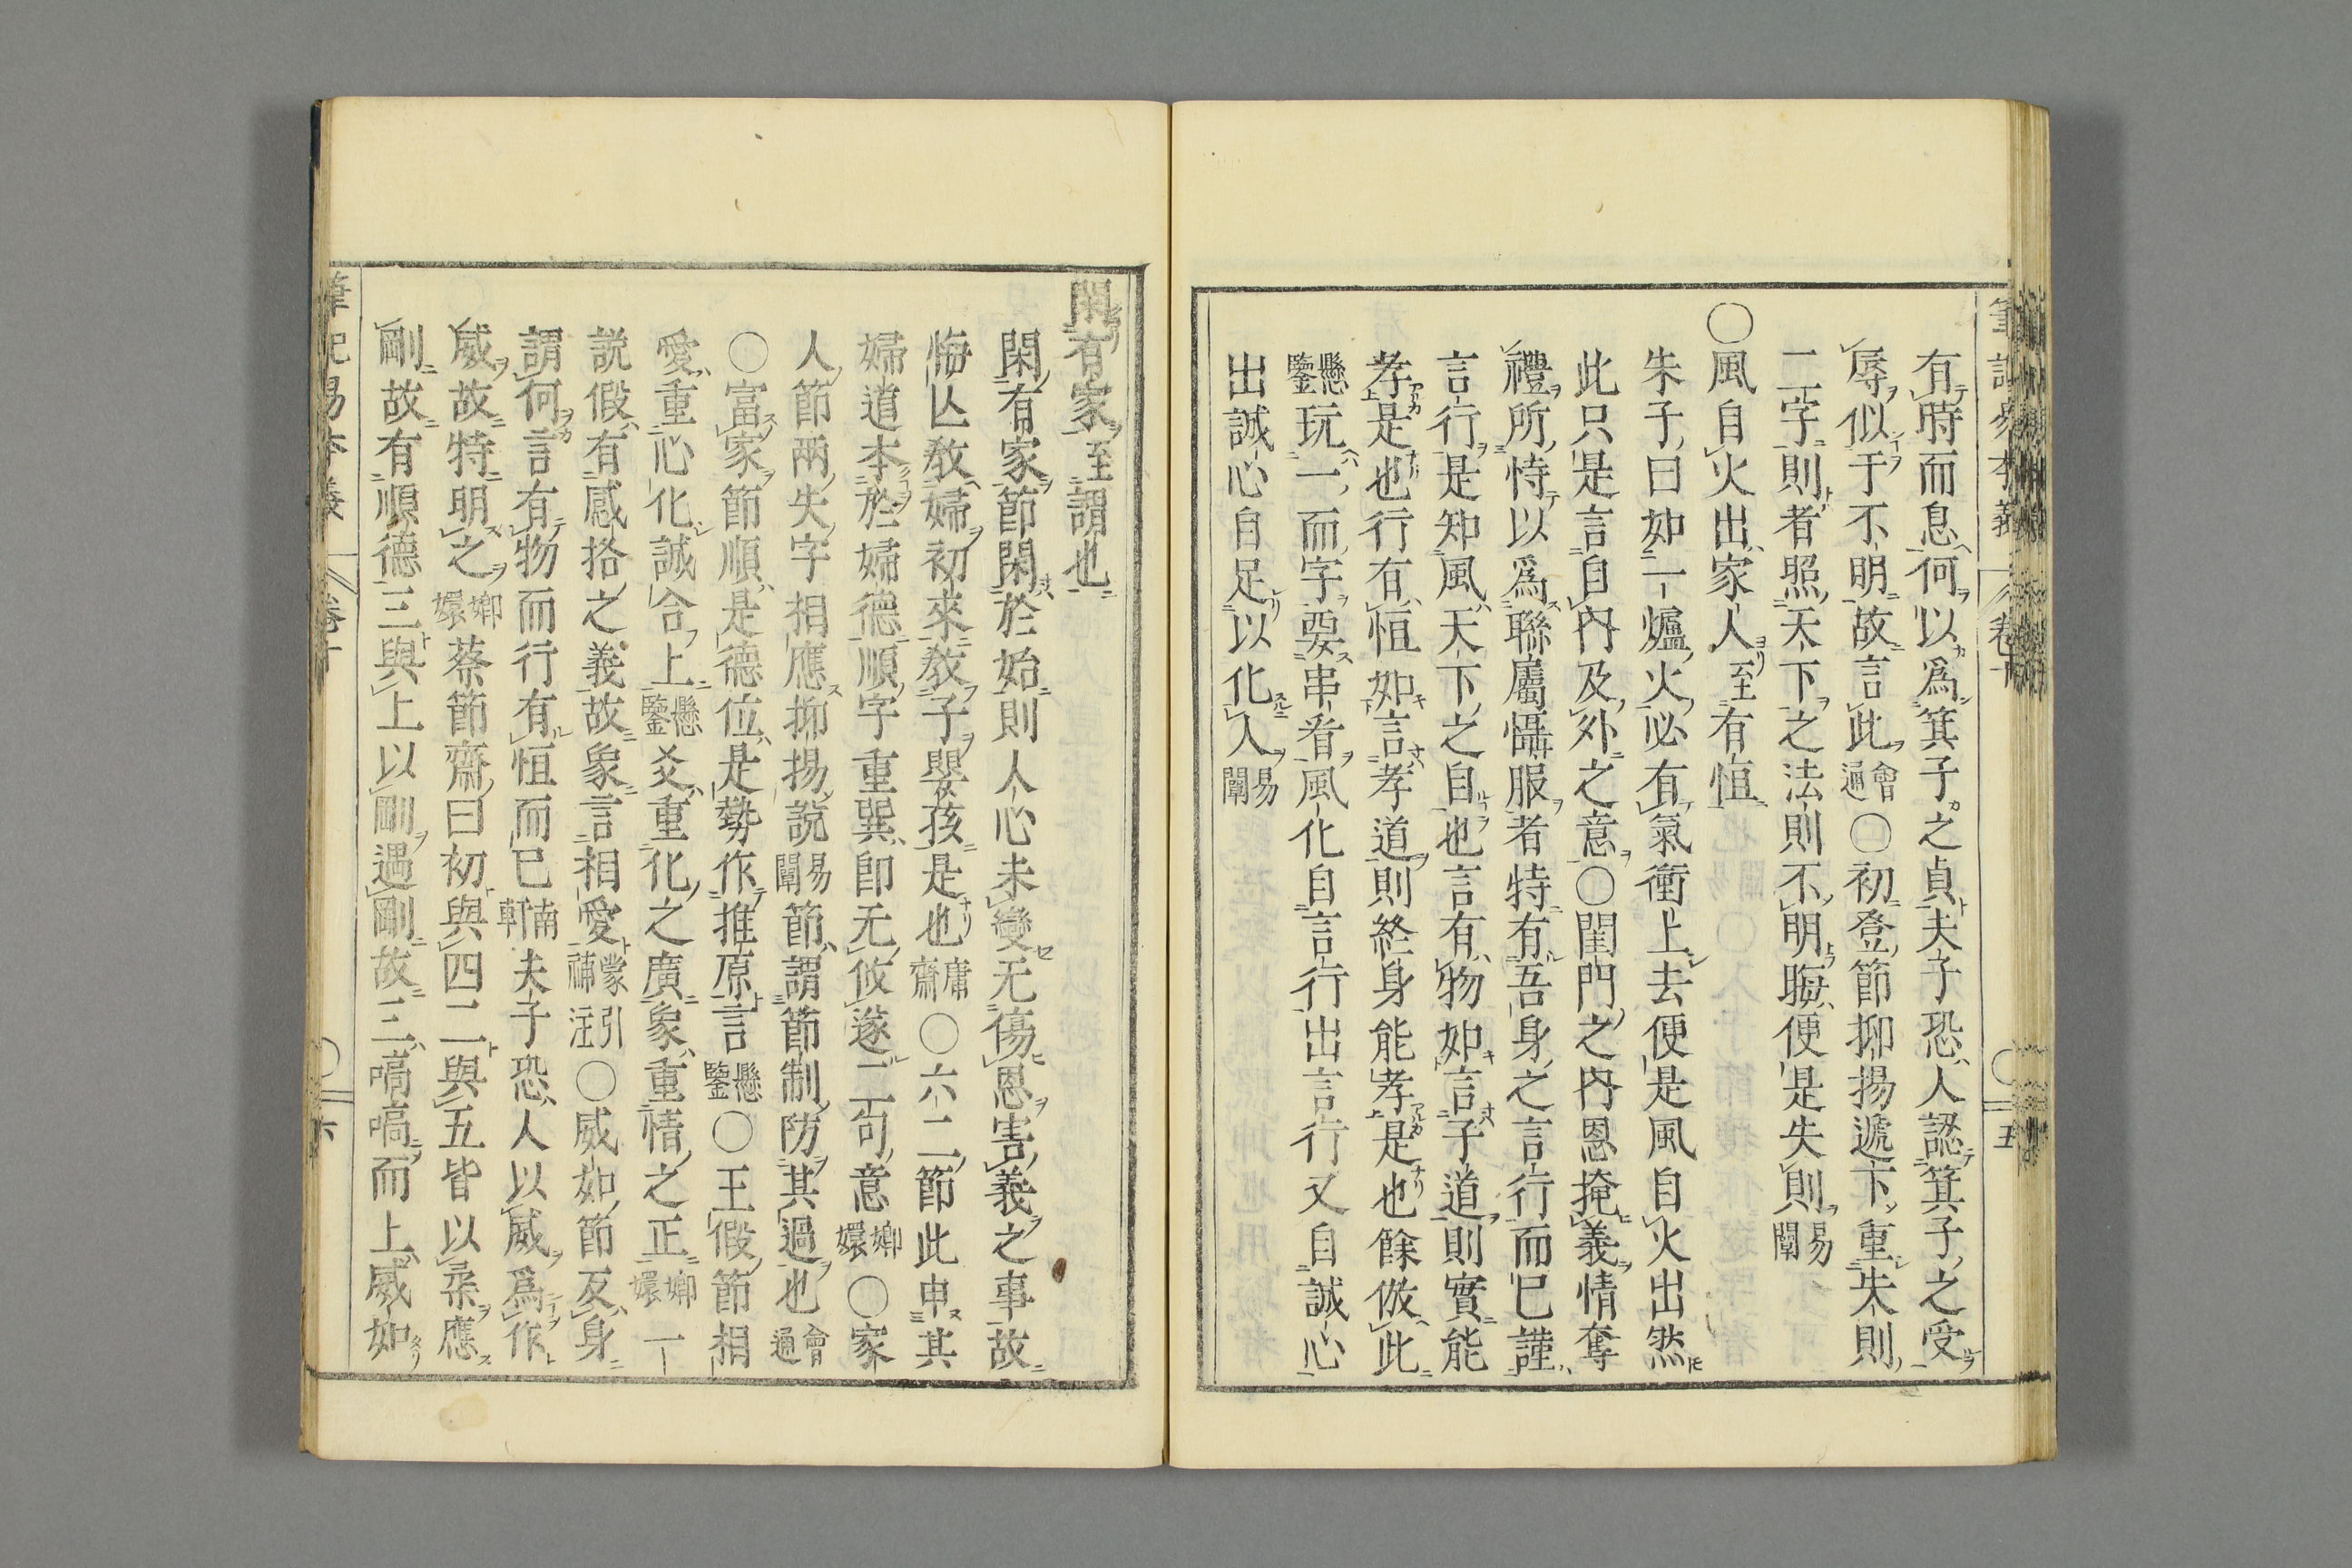 有時而息何以爲箕子之貞夫子恐人認箕子之受
辱似于不明故言此會通○初登節抑揚遞下重失則
二字則者照天下之法則不明晦便是失則易闡
○風自火出家人至有恒
朱子曰如一爐火必有氣衝上去便是風自火出然
此只是言自內及外之意○閨門之內恩掩義情奪
禮所恃以爲聯屬懾服者特有吾身之言行而已謹
言行是知風天下之自也言有物如言子道則實能
孝是也行有恒如言孝道則終身能孝是也餘倣此
懸鑒玩一而字要串看風化自言行出言行又自誠心
出誠心自足以化人易闡
閑有家至謂也
閑有家節閑於始則人心未變无傷恩害義之事故
悔亾教婦初來教子嬰孩是也庸齋○六二節此申其
婦道本於婦德順字重巽卽无攸遂二句意嫏嬛○家
人節兩失字相應抑揚說易闡節謂節制防其過也會通
○富家節順是德位是勢作推原言懸鑒○王假節相
愛重心化誠合上懸鑒爻重化之廣象重情之正嫏嬛一
說假有感格之義故象言相愛蒙引補注○威如節反身
謂何言有物而行有恒而已南軒夫子恐人以威爲作
威故特明之嫏嬛蔡節齋曰初與四二與五皆以柔應
剛故有順德三與上以剛遇剛故三嗃嗃而上威如
筆記易本義 卷十 五
筆記易本義 卷十 六